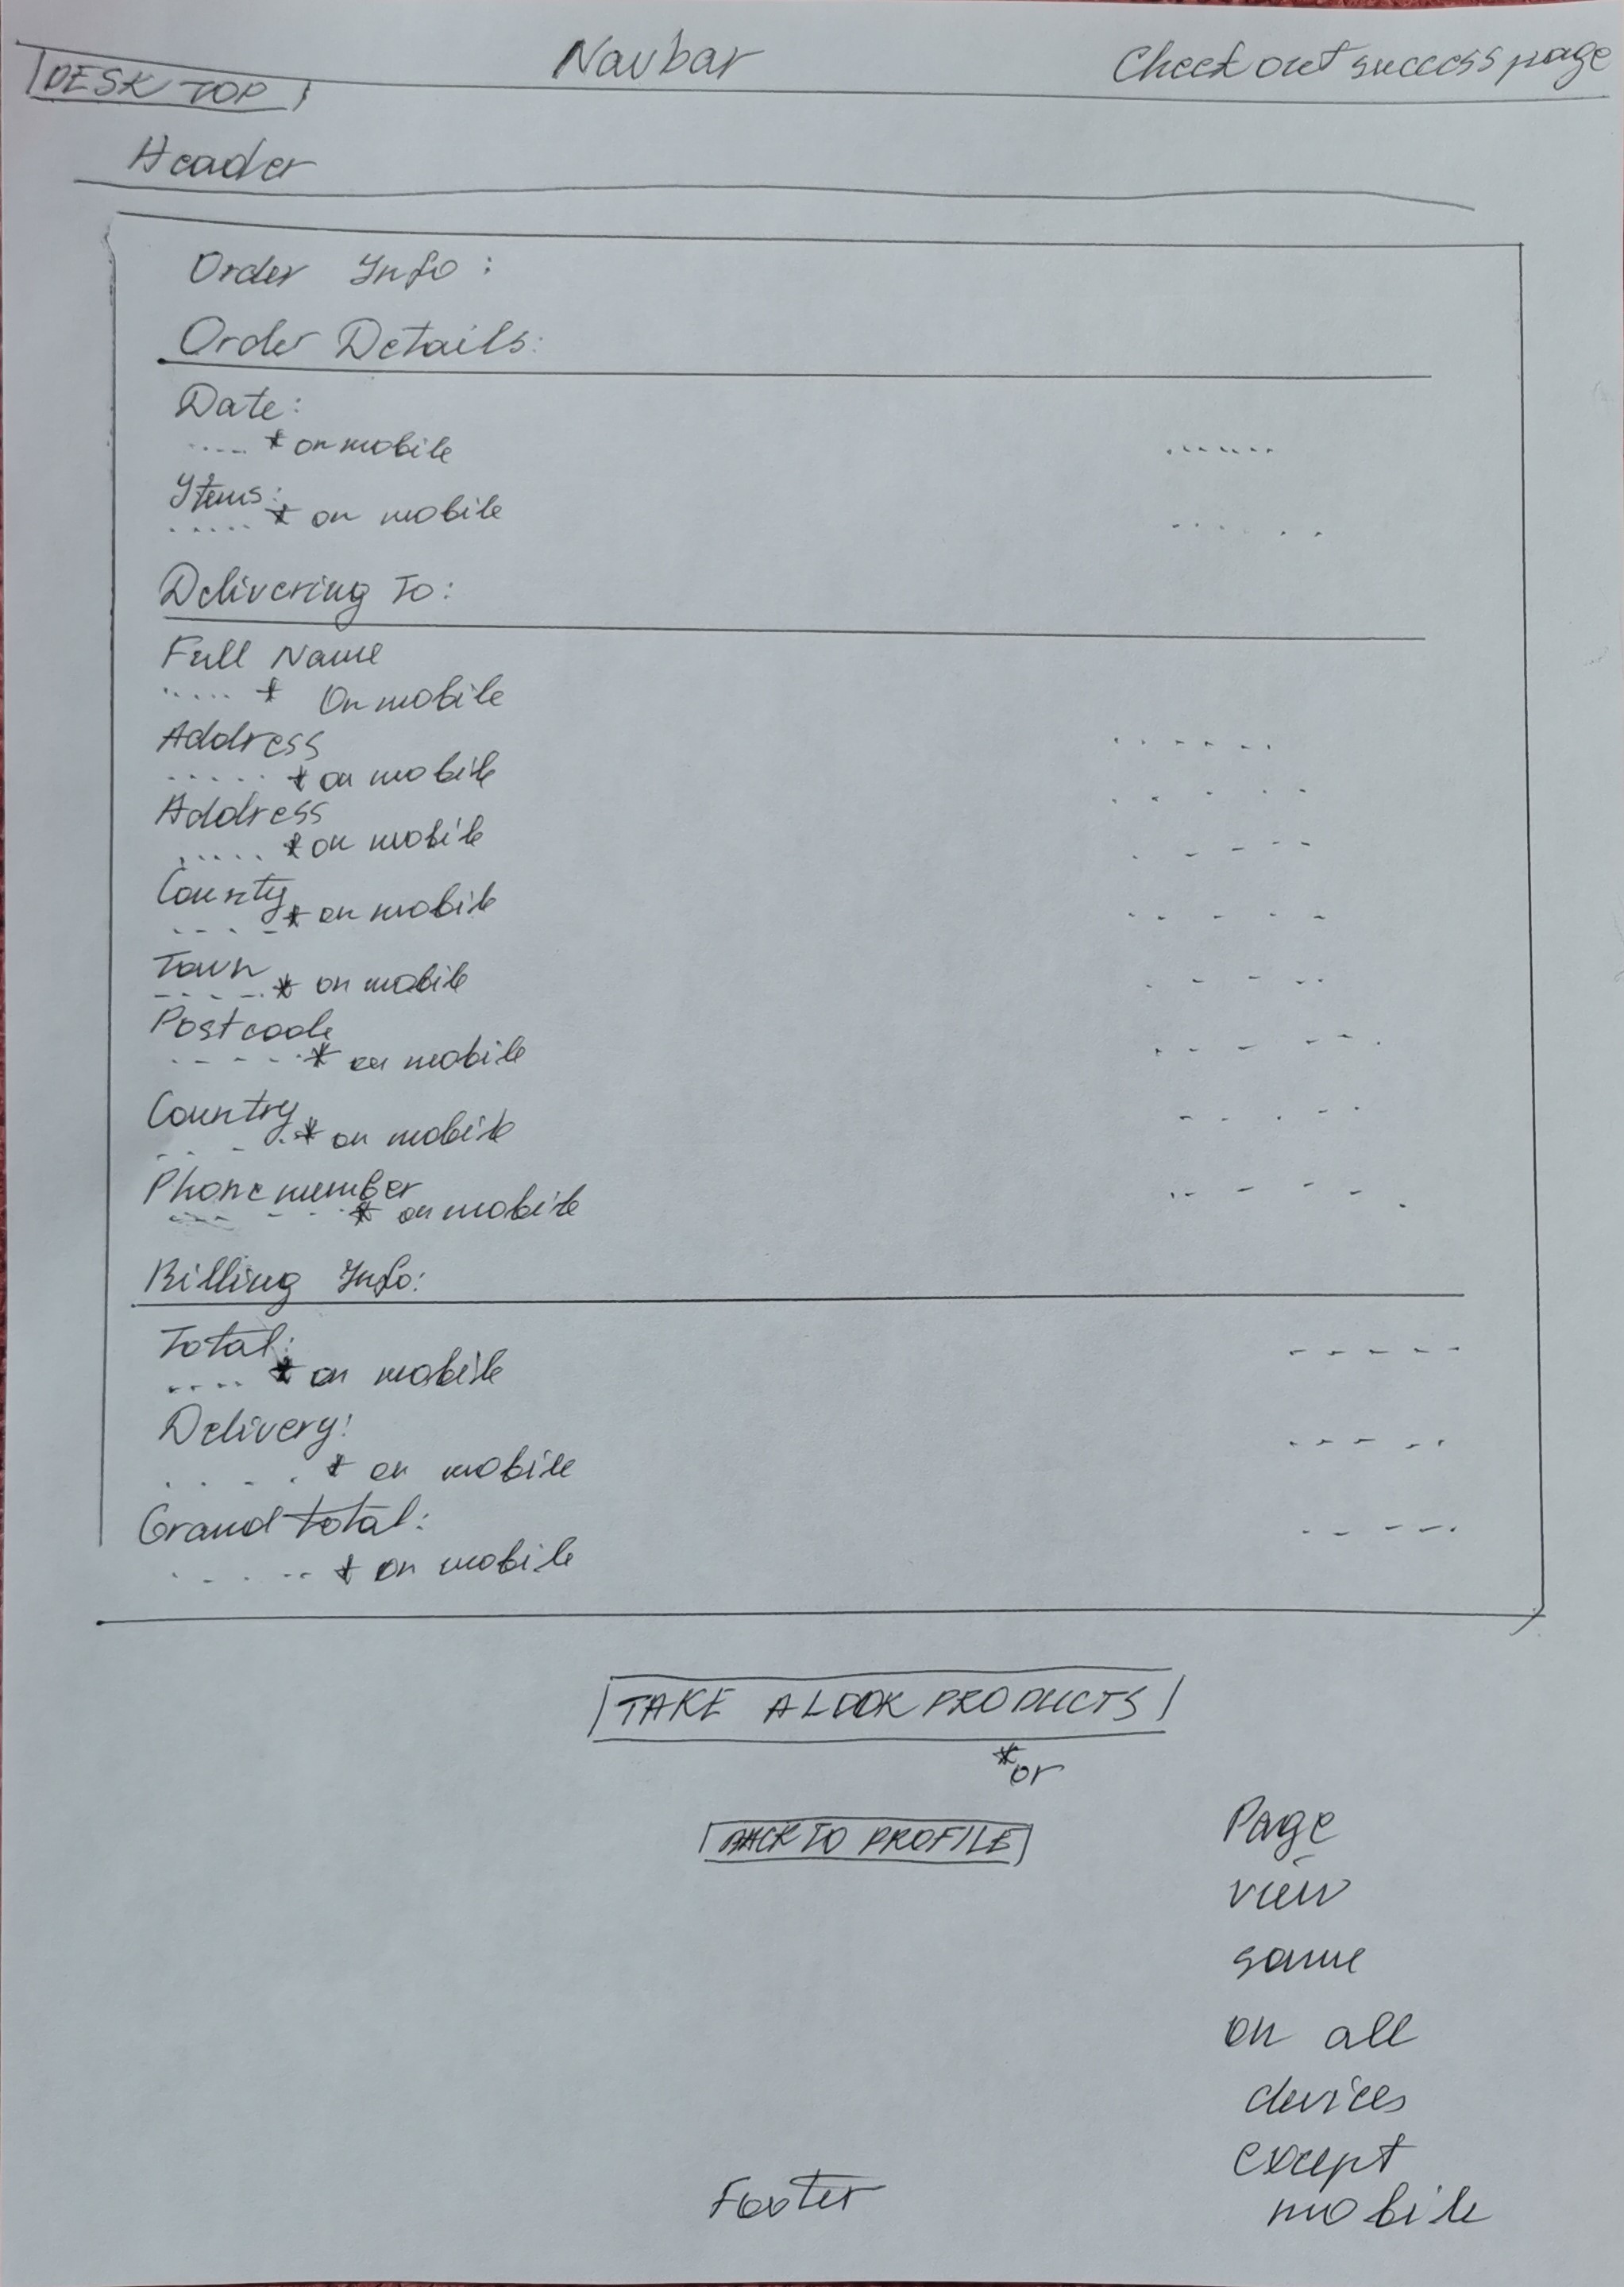 DESK TOP Navbar Check out success page
Header
Order Info :
Order Details:
Date:
..... * on mobile .......
Items:
..... * on mobile ......
Delivering To:
Full Name
..... * On mobile
Address ......
..... * on mobile
Address .....
..... * on mobile .....
County
..... * on mobile .....
Town
..... * on mobile .....
Postcode
..... * on mobile .....
Country
..... * on mobile .....
Phone number
..... * on mobile .....
Billing Info:
Total: - - - - -
.... * on mobile
Delivery: - - - - -
..... * on mobile
Grand total: - - - - -
..... * on mobile
TAKE A LOOK PRODUCTS
* or
BACK TO PROFILE
Page
view
same
on all
devices
except
mobile
Footer